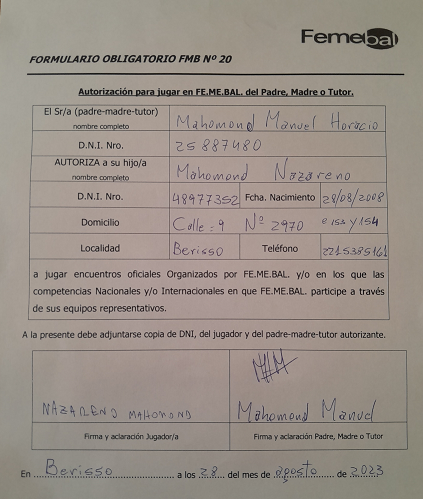 Femebal
FORMULARIO OBLIGATORIO FMB Nº 20
Autorización para jugar en FE.ME.BAL. del Padre, Madre o Tutor.
El Sr/a (padre-madre-tutor) nombre completo Mahomond Manuel Horacio
D.N.I. Nro. 25887480
AUTORIZA a su hijo/a nombre completo Mahomond Nazareno
D.N.I. Nro. 48977352 Fcha. Nacimiento 28/08/2008
Domicilio Calle: 9 Nº 2970 e 153 y 154
Localidad Berisso Teléfono 2215385161
a jugar encuentros oficiales Organizados por FE.ME.BAL. y/o en los que las
competencias Nacionales y/o Internacionales en que FE.ME.BAL. participe a través
de sus equipos representativos.
A la presente debe adjuntarse copia de DNI, del jugador y del padre-madre-tutor autorizante.
NAZARENO MAHOMOND Mahomond Manuel
Firma y aclaración Jugador/a Firma y aclaración Padre, Madre o Tutor
En Berisso a los 28 del mes de agosto de 2023